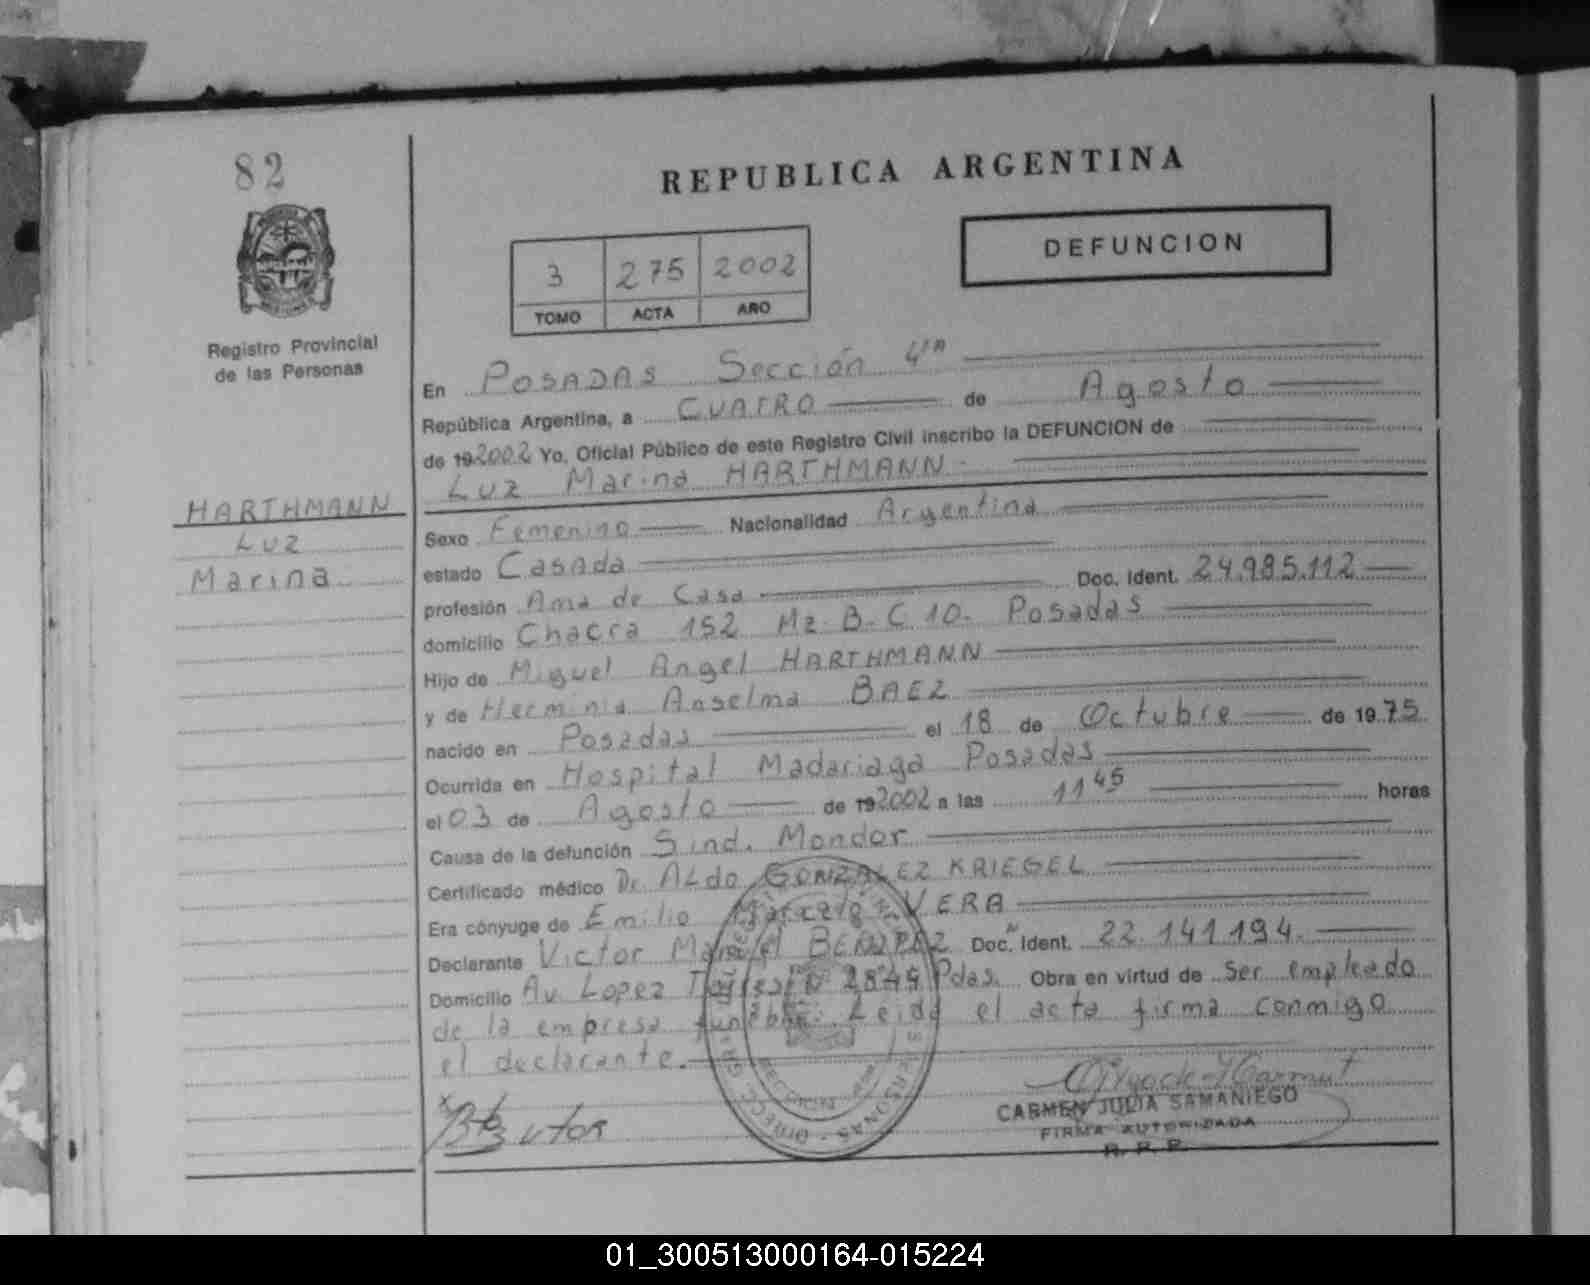 82
REPUBLICA ARGENTINA
DEFUNCION
3 275 2002
TOMO ACTA AÑO
Registro Provincial
de las Personas
En POSADAS Sección 4ta
República Argentina, a CUATRO de Agosto
de 192002 Yo, Oficial Público de este Registro Civil inscribo la DEFUNCION de
Luz Marina HARTHMANN
HARTHMANN
Luz
Marina
Sexo Femenino Nacionalidad Argentina
estado Casada
profesión Ama de Casa Doc. Ident. 24.985.112
domicilio Chacra 152 Mz. B. C 10. Posadas
Hijo de Miguel Angel HARTHMANN
y de Herminia Anselma BAEZ
nacido en Posadas el 18 de Octubre de 1975
Ocurrida en Hospital Madariaga Posadas
el 03 de Agosto de 192002 a las 11 45 horas
Causa de la defunción Sind. Mondor
Certificado médico Dr. ALdo GONZALEZ KRIEGEL
Era cónyuge de Emilio Marcelo VERA
Declarante Victor Manuel BENITEZ Doc. Ident. 22.141.194.
Domicilio Av. Lopez Torres Nº 2849 Pdas. Obra en virtud de Ser empleado
de la empresa funebre. Leida el acta firma conmigo
el declarante.
CARMEN JULIA SAMANIEGO
FIRMA AUTORIZADA
R. P. P.
01_300513000164-015224